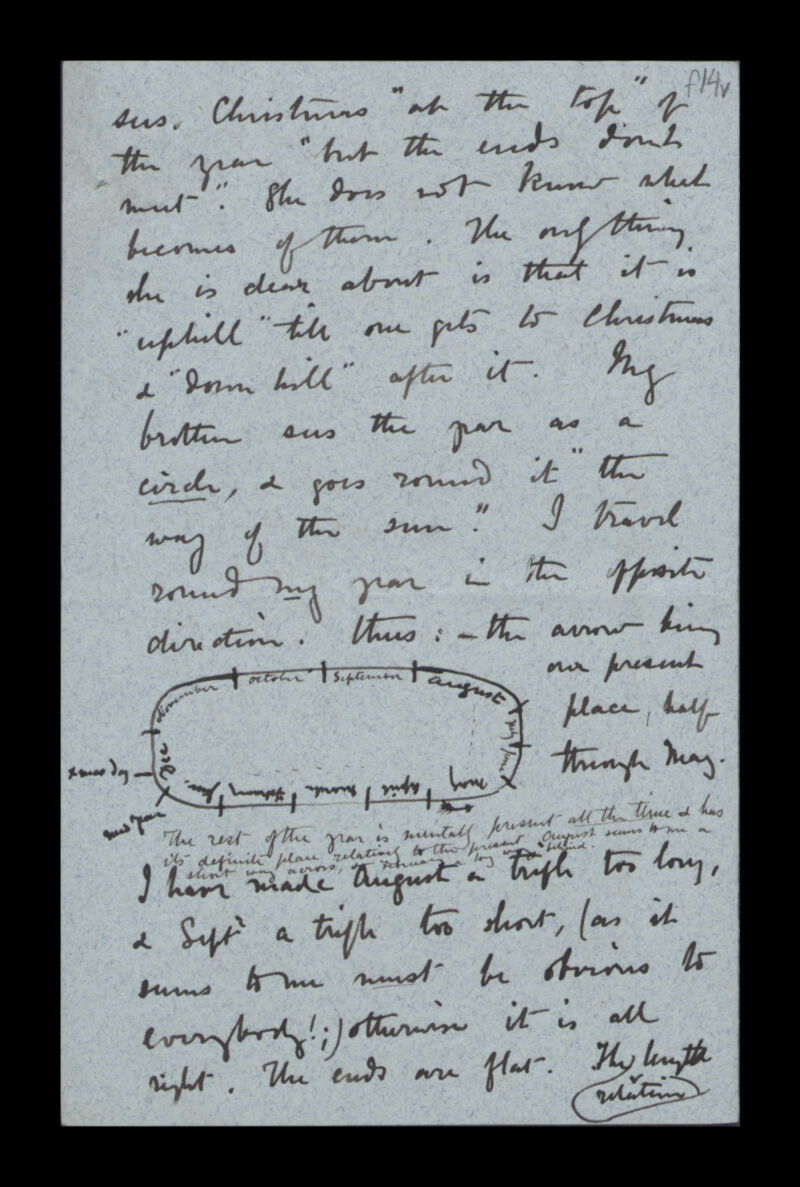 f14v
sees. Christmas "at the top" of
the year "but the ends don't
meet". She does not know what
becomes of them. The only thing
she is clear about is that it is
"uphill" till one gets to Christmas
& "down hill" after it. My
brother sees the year as a
circle, & goes round it "the
way of the sun". I travel
round my year in the opposite
direction. Thus: - the arrow being
our present
place, half
through May.
November October September August
July June
Xmas day Dec.
Jan. February March April May
New Year
The rest of the year is mentally present all the time & has
its definite place relatively to the present. August seems to me a
short way across, & January a long way behind.
I have made August a trifle too long,
& Septr a trifle too short, (as it
seems to me must be obvious to
everybody!;) otherwise it is all
right. The ends are flat. The length
relation